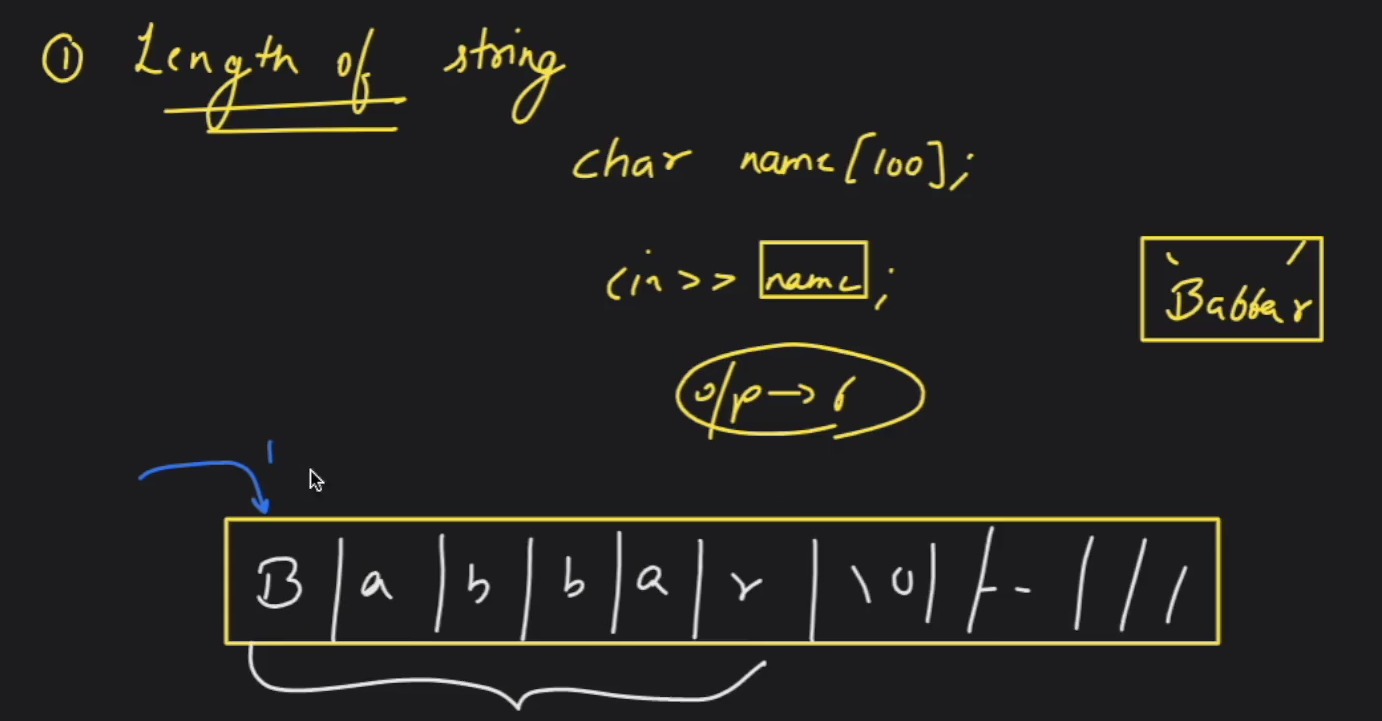 ① Length of string
char name[100];
cin>> name;
'Babbar'
o/p→6
1
B|a|b|b|a|r|\0|